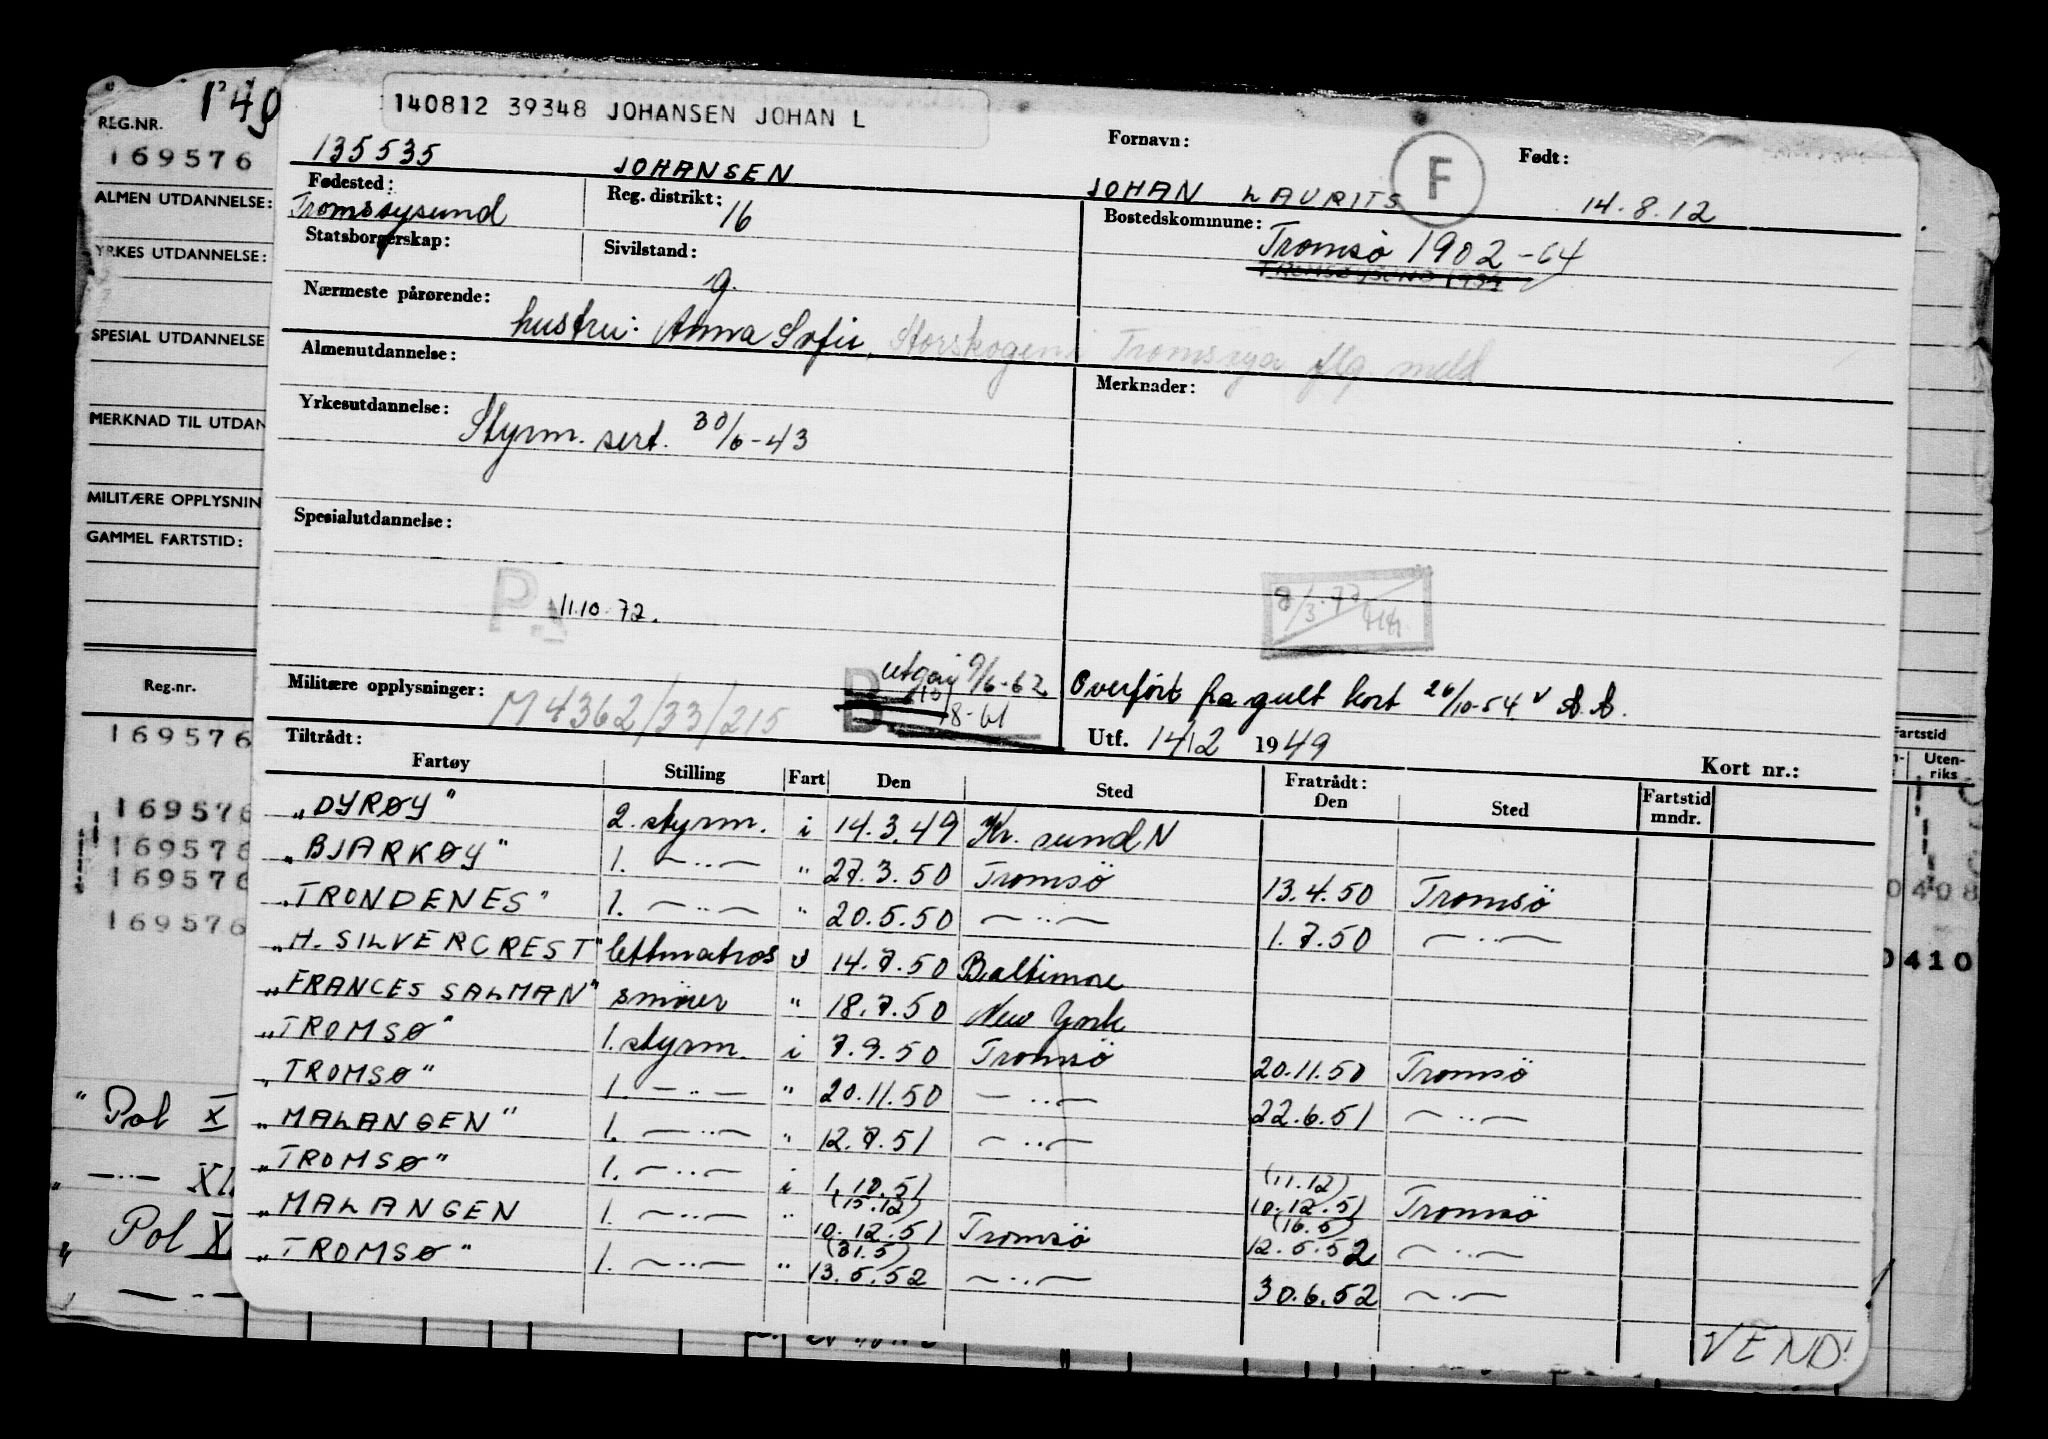 140812 39348 JOHANSEN JOHAN L
135535 JOHANSEN Fornavn: JOHAN LAURITS F Født: 14.8.12
Fødested: Tromsøysund Reg. distrikt: 16 Bostedskommune: Tromsø 1902-64
Statsborgerskap: Sivilstand: g.
Nærmeste pårørende: hustru: Anna Sofie, Storskogen Tromsøya flg. meld
Almenutdannelse: Merknader:
Yrkesutdannelse: Styrm. sert. 30/6-43
Spesialutdannelse:
P. 11.10.72.
Militære opplysninger: M 4362/33/215 B utgår 9/6-62
Overført fra gult kort 26/10-54 A.A.
Utf. 14/2 1949 Kort nr.:
Tiltrådt: Fratrådt:
Fartøy Stilling Fart Den Sted Den Sted Fartstid mndr.
"DYRØY" 2. styrm. i 14.3.49 Kr. sund N
"BJARKØY" 1. —..— " 27.3.50 Tromsö 13.4.50 Tromsö
"TRONDENES" 1. —..— " 20.5.50 —..— 1.7.50 —..—
"H. SILVERCREST" lettmatros u 14.7.50 Baltimore
"FRANCES SALMAN" smører " 18.7.50 New York
"TROMSØ" 1. styrm. i 7.9.50 Tromsö 20.11.50 Tromsö
"TROMSØ" 1. —..— " 20.11.50 —..— 22.6.51 —..—
"MALANGEN" 1. —..— " 12.7.51 —..—
"TROMSØ" 1. —..— i 1.10.51 (11.12) 10.12.51 Tromsö
"MALANGEN 1. —..— " (15.12) 10.12.51 Tromsö (16.5) 12.5.52 —..—
"TROMSØ" 1. —..— " (31.5) 13.5.52 —..— 30.6.52 —..—
VEND!
REG.NR.
169576
ALMEN UTDANNELSE:
YRKES UTDANNELSE:
SPESIAL UTDANNELSE
MERKNAD TIL UTDAN
MILITÆRE OPPLYSNIN
GAMMEL FARTSTID:
Reg.nr.
169576
169576
169576
169576
169576
" Pol X
" —..— XI
" Pol X
Fartstid
Uten-
riks
0408
0410